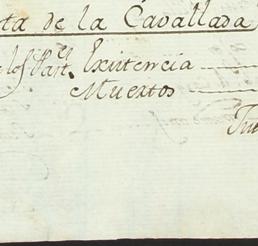 ta de la Cavallada
los Part.es Existencia
Muertos